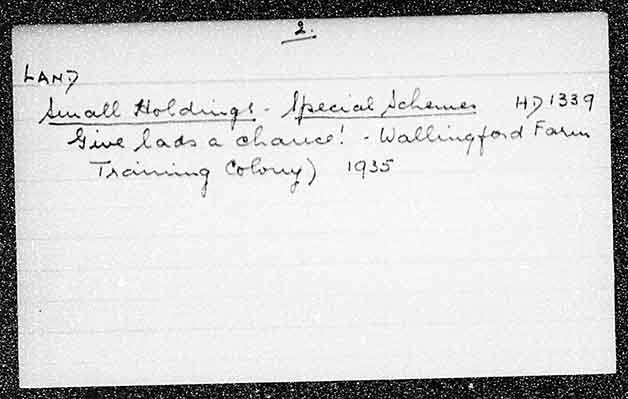 2.
LAND
Small Holdings - Special Schemes HD1339
Give lads a chance! - Wallingford Farm
Training Colony) 1935